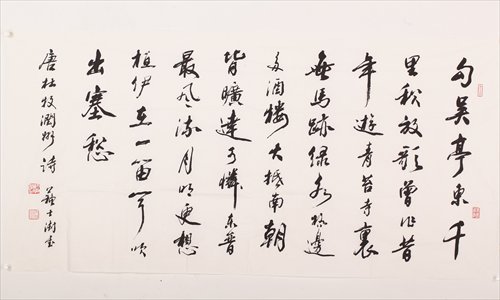 勾吴亭東千
里秋放歌曾作昔
年遊青苔寺裏
無馬跡緑水橋邊
多酒樓大抵南朝
皆曠達可憐東晉
最風流月明更想
桓伊在一笛聞吹
出塞愁
唐杜牧潤州詩 蘇士澍書